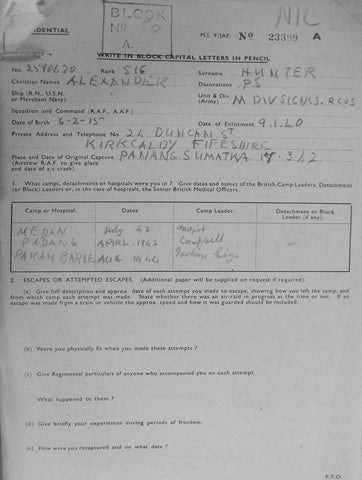 DENTIAL
BLOCK
No 50
A.
NIL
M.I. 9/JAP. No 23399 A
WRITE IN BLOCK CAPITAL LETTERS IN PENCIL
No. 2590620 Rank SIG Surname HUNTER
Christian Names ALEXANDER Decorations P.S
Ship (R.N., U.S.N. or Merchant Navy) Unit & Div. (Army) M DIV SIGNLS. RCOS
Squadron and Command (R.A.F., A.A.F.)
Date of Birth 6-2-15 Date of Enlistment 9.1.40
Private Address and Telephone No. 24 DUNCAN ST
KIRKCALDY FIFESHIRE
Place and Date of Original Capture PADANG SUMATRA 17.3.42
(Aircrew R.A.F. to give place
and date of a/c crash).
1. What camps, detachments or hospitals were you in ? Give dates and names of the British Camp Leaders, Detachment
(or Block) Leaders or, in the case of hospitals, the Senior British Medical Officers.
Camp or Hospital. Dates. Camp Leader. Detachment or Block Leader (if any).
MEDAN July 42 Major
PADANG APRIL 1942 Campbell —
PAKAN BARU AUG 1944 Indian Sigs
2. ESCAPES OR ATTEMPTED ESCAPES. (Additional paper will be supplied on request if required).
(a) Give full description and approx. date of each attempt you made to escape, showing how you left the camp, and
from which camp each attempt was made. State whether there was an air-raid in progress at the time or not. If an
escape was made from a train or vehicle the approx. speed and how it was guarded should be included.
(b) Were you physically fit when you made these attempts ?
(c) Give Regimental particulars of anyone who accompanied you on each attempt.
What happened to them ?
(d) Give briefly your experiences during periods of freedom.
(e) How were you recaptured and on what date ?
P.T.O.